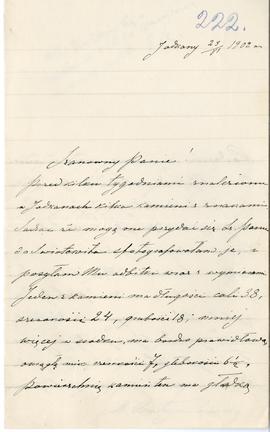 222.
Jodkany 23/VI 1902 r.
Szanowny Panie!
Przed kilku tygodniami znaleziono
w Jodkanach kilka kamieni z znakami
Sądząc że mogą one przydać się Sz. Panu
do Światowita sfotografowałam je, i
posyłam Mu odbitki wraz z wymiarami
Jeden z kamieni ma długości cali 38,
szerokości 24, grubości 18; mniej
więcej w środku, ma bardzo prawidłową
szerokości 7, głębokości 6½,
Powierzchnię kamień ta ma gładką